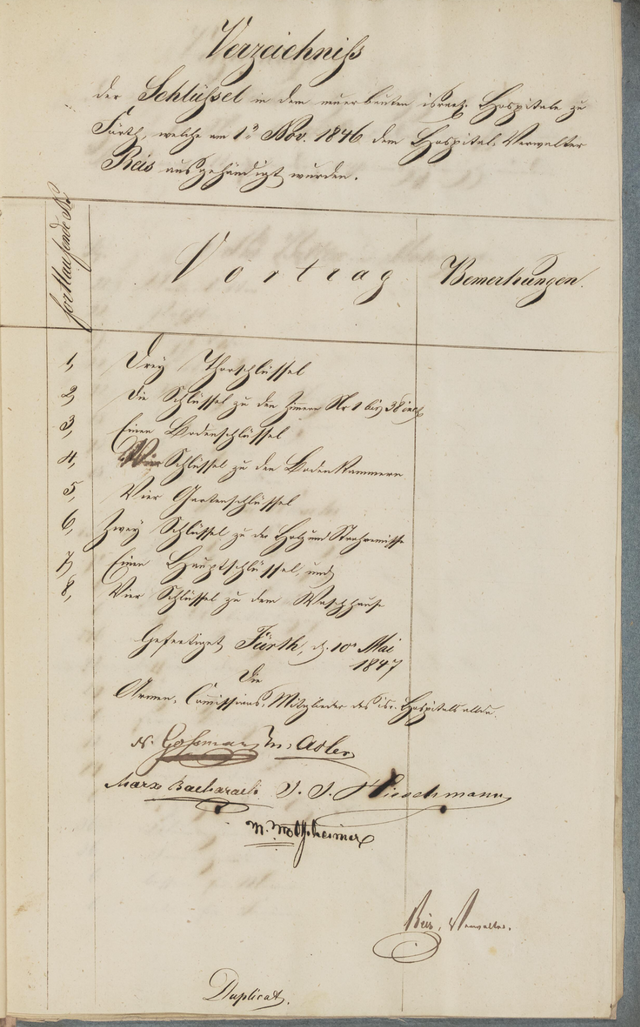 Verzeichniß
der Schlüssel in dem neuerbauten israel. Hospitale zu
Fürth, welche am 13 Nov. 1846 dem Hospital-Verwalter
Reis ausgehändigt wurden.
fortlaufende №
Vortrag
Bemerkungen.
1, Drey Thorschlüssel
2, Die Schlüssel zu den Zimern Nr 1 bis 38 incl.
3, Einen Bodenschlüssel
4, Vier Schlüssel zu den Bodenkammern
5, Vier Gartenschlüssel
6, Zwey Schlüssel zu der Holz und
7, Einen Hauptschlüssel, und
8, Vier Schlüssel zu dem Waschhause
Gefertigt Fürth, d. 10 Mai
1847
Die
Armen-Comissions-Mitglieder des isr. Hospitals
N. Gosmann M. Adler
Marx Bacharach J. J. Hirschmann
Reis, Verwalter.
Duplicat.